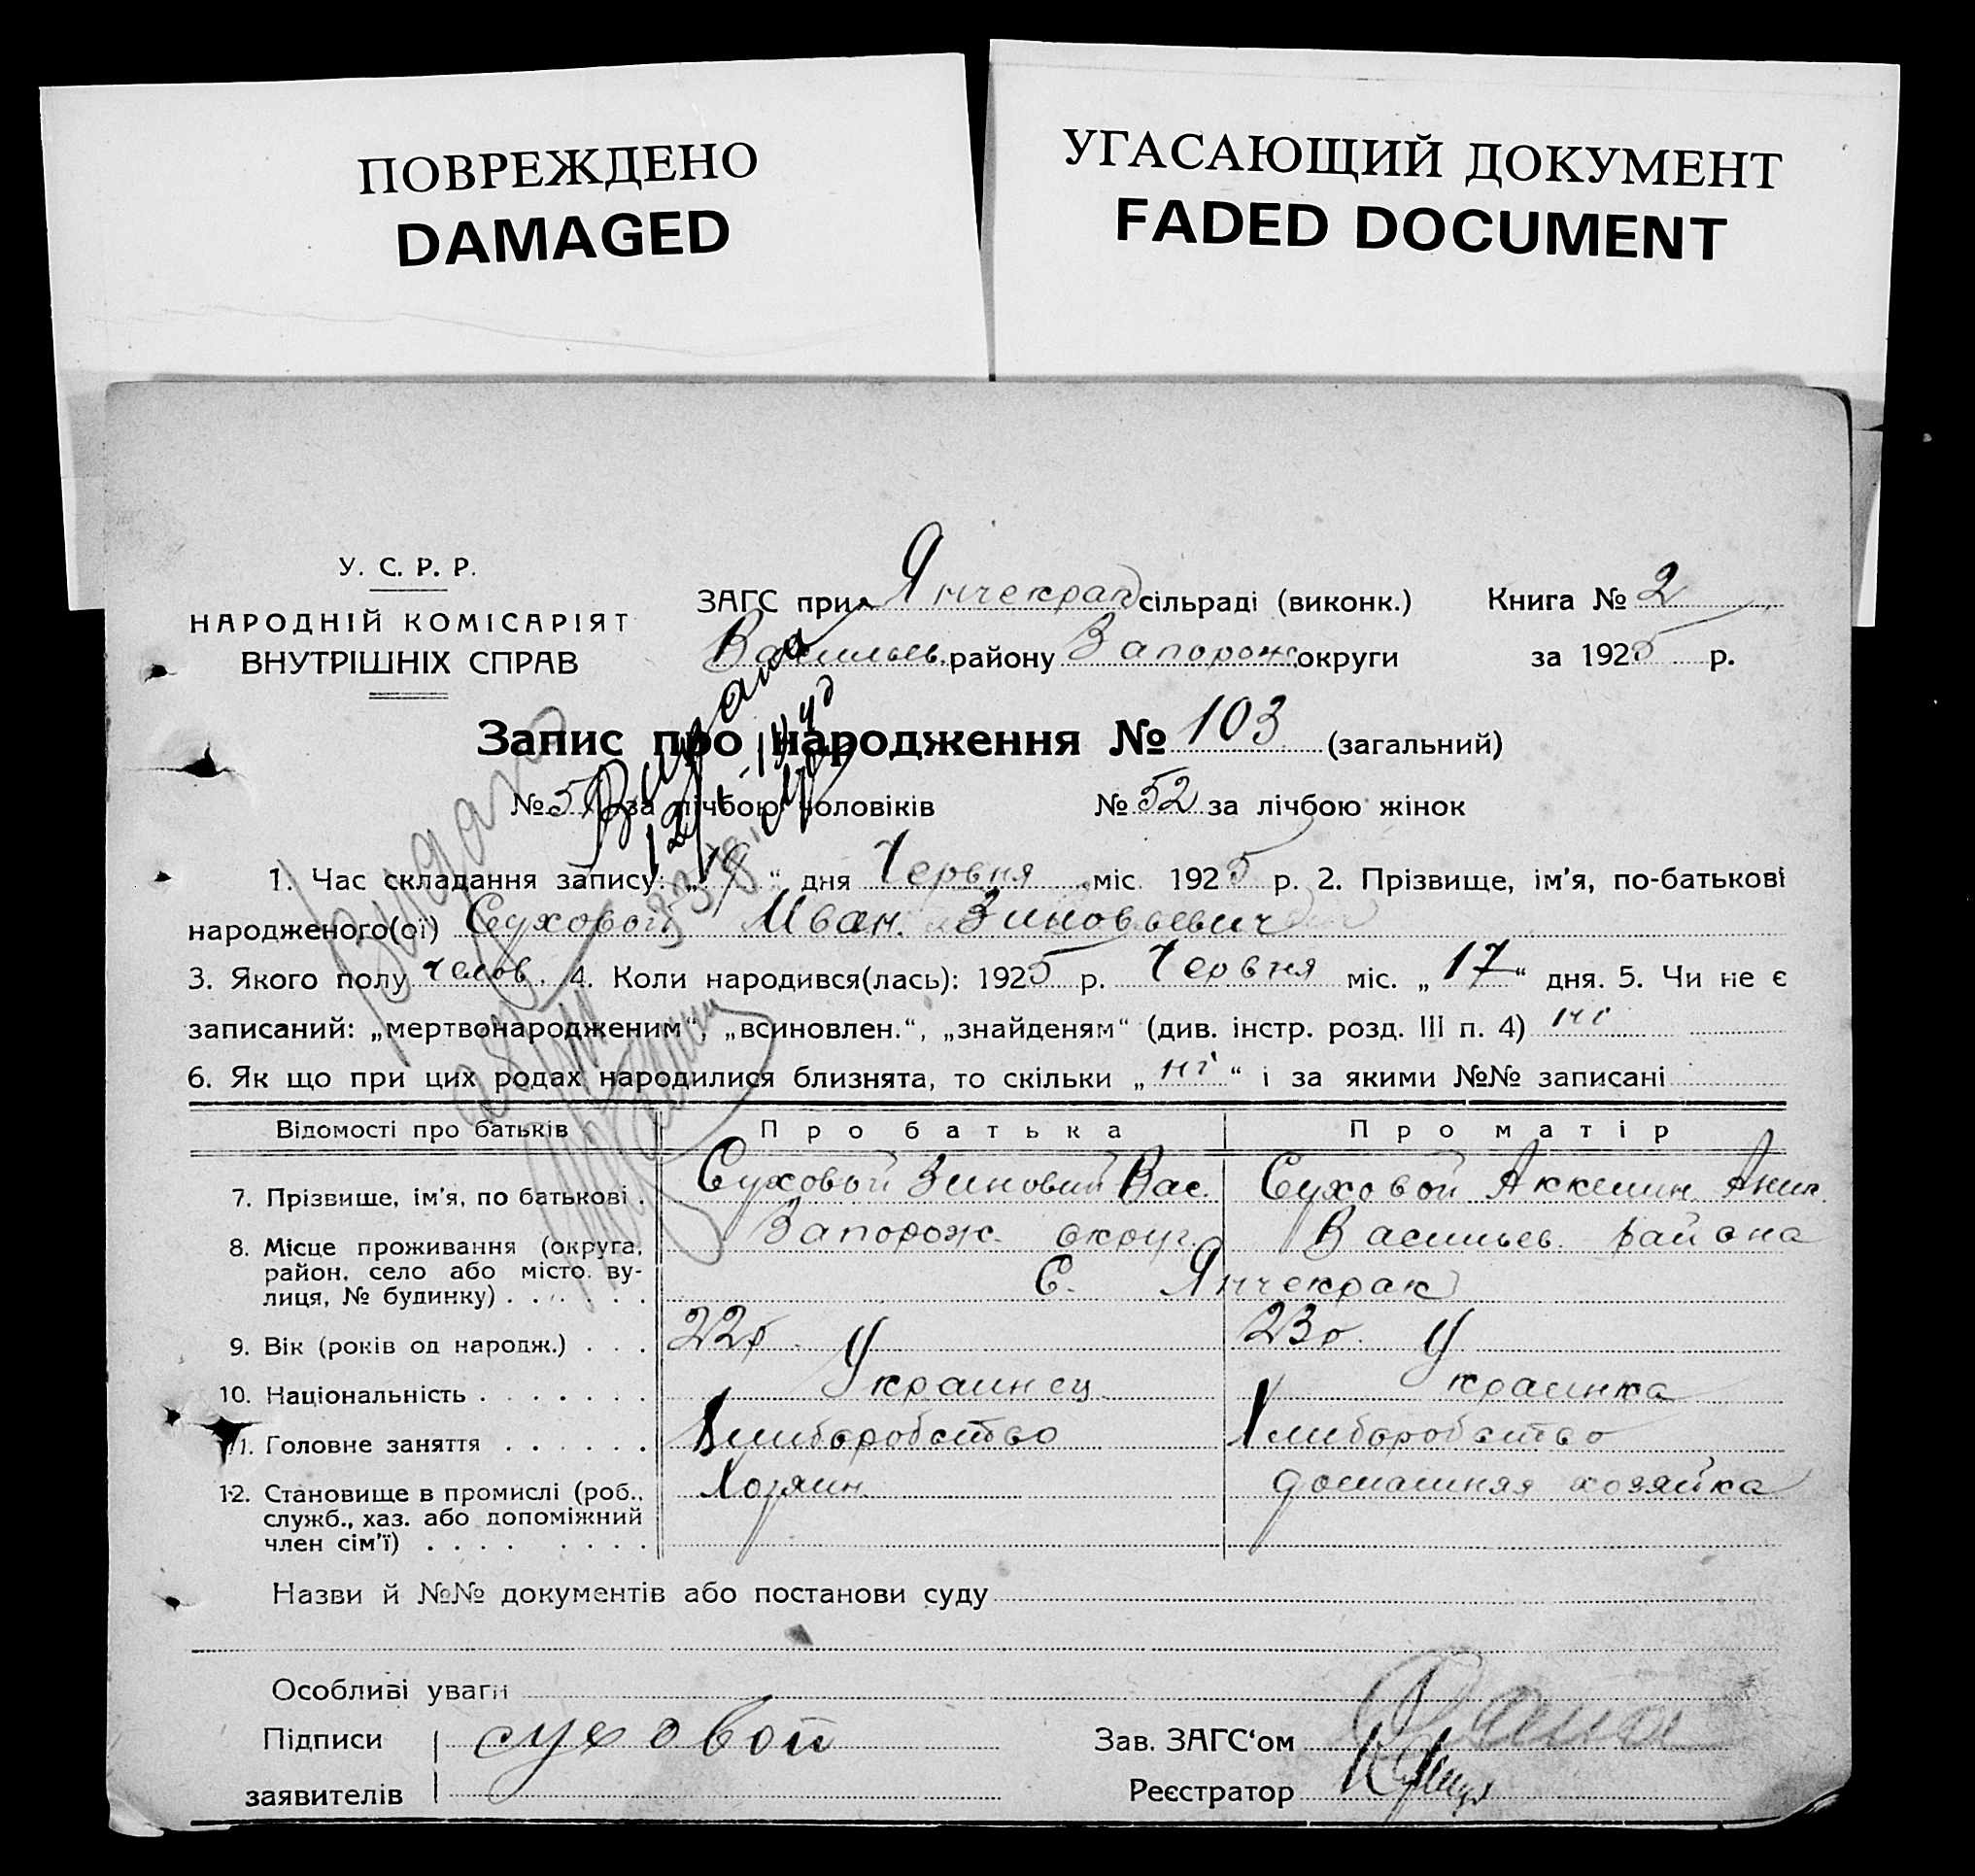 ПОВРЕЖДЕНО
DAMAGED
УГАСАЮЩИЙ ДОКУМЕНТ
FADED DOCUMENT
У. С. Р. Р.
НАРОДНІЙ КОМІСАРІЯТ
ВНУТРІШНІХ СПРАВ
ЗАГС при Янчекрак сільраді (виконк.)
Васильев. району Запорож. округи
Книга № 2
за 1925 р.
Запис про народження № 103 (загальний)
№ 51 за лічбою чоловіків № 52 за лічбою жінок
1. Час складання запису: „18“ дня Червня міс. 1925 р. 2. Прізвище, ім'я, по-батькові
народженого(ої) Суховой Иван Зиновьевич
3. Якого полу челов. 4. Коли народився(лась): 1925 р. Червня міс. „17“ дня. 5. Чи не є
записаний: „мертвонародженим“, „всиновлен.“, „знайденям“ (див. інстр. розд. III п. 4) ні
6. Як що при цих родах народилися близнята, то скільки „ні“ і за якими №№ записані
Відомості про батьків Про батька Про матір
7. Прізвище, ім'я, по батькові . Суховой Зиновий Вас. Суховой Аксенин
8. Місце проживання (округа, Запорож. округ. Васильев. района
район, село або місто, ву- С. Янчекрак
лиця, № будинку) . . . . . .
9. Вік (років од народж.) . . . 22р. 23р.
10. Національність . . . . . . . Украинец Украинка
11. Головне заняття . . . . . . Хлиборобство Хлиборобство
12. Становище в промислі (роб., Хозяин домашняя хозяйка
служб., хаз. або допоміжний
член сім'ї) . . . . . . . .
Назви й №№ документів або постанови суду
Особливі уваги
Підписи суховой Зав. ЗАГС'ом
заявителів Реєстратор
Видано
Выдана